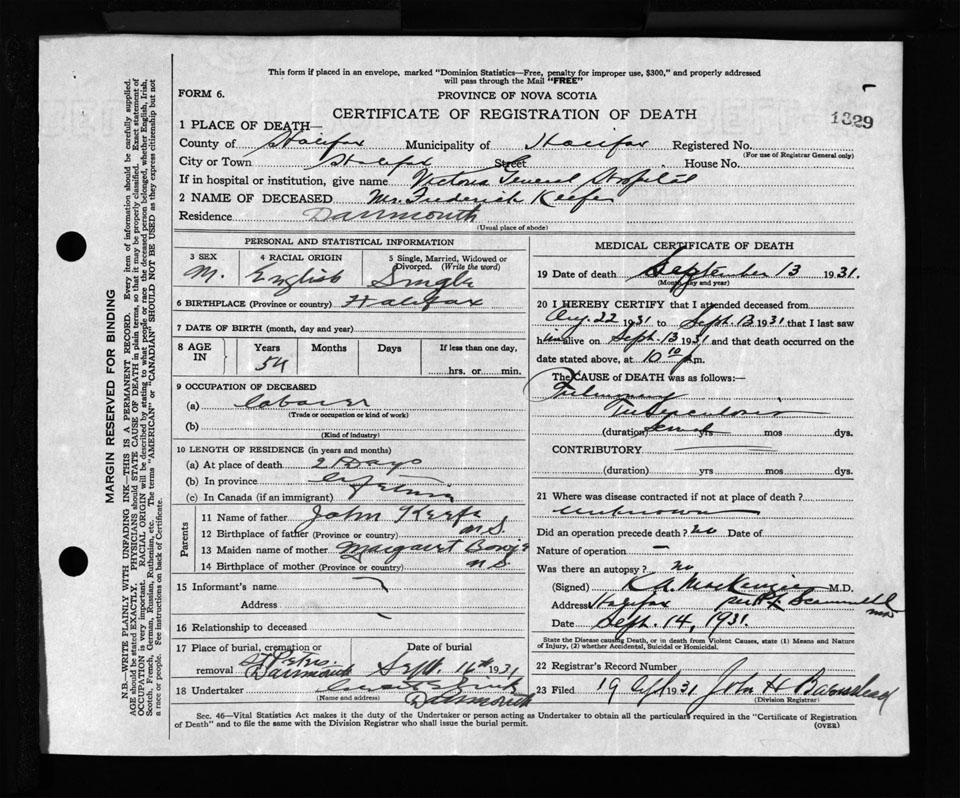 This form if placed in an envelope, marked "Dominion Statistics—Free, penalty for improper use, $300," and properly addressed
will pass through the Mail "FREE"
FORM 6.
PROVINCE OF NOVA SCOTIA
CERTIFICATE OF REGISTRATION OF DEATH
1829
1 PLACE OF DEATH—
County of Halifax Municipality of Halifax Registered No.
(For use of Registrar General only)
City or Town Halifax Street House No.
If in hospital or institution, give name Victoria General Hospital
2 NAME OF DECEASED Mr. Frederick Keefe
Residence Dartmouth
(Usual place of abode)
PERSONAL AND STATISTICAL INFORMATION
3 SEX M.
4 RACIAL ORIGIN English
5 Single, Married, Widowed or Divorced. (Write the word) Single
6 BIRTHPLACE (Province or country) Halifax
7 DATE OF BIRTH (month, day and year)
8 AGE IN Years 54 Months Days If less than one day, hrs. or min.
9 OCCUPATION OF DECEASED
(a) Laborer
(Trade or occupation or kind of work)
(b)
(Kind of industry)
10 LENGTH OF RESIDENCE (in years and months)
(a) At place of death 2 Days
(b) In province Lifetime
(c) In Canada (if an immigrant)
Parents
11 Name of father John Keefe
12 Birthplace of father (Province or country) N.S.
13 Maiden name of mother Margaret
14 Birthplace of mother (Province or country) N.S.
15 Informant's name
Address
16 Relationship to deceased
17 Place of burial, cremation or removal St Peters. Dartmouth
Date of burial Sept. 16th 1931
18 Undertaker
(Name and address) Dartmouth
MEDICAL CERTIFICATE OF DEATH
19 Date of death September 13 1931.
(Month, day and year)
20 I HEREBY CERTIFY that I attended deceased from
Aug. 22 1931 to Sept. 13 1931 that I last saw
him alive on Sept. 13 1931 and that death occurred on the
date stated above, at 10 10 P.m.
The CAUSE OF DEATH was as follows:—
Pulmonary
Tuberculosis
(duration) yrs mos dys.
CONTRIBUTORY
(duration) yrs mos dys.
21 Where was disease contracted if not at place of death?
unknown
Did an operation precede death? no Date of
Nature of operation —
Was there an autopsy? no
(Signed) K. A. MacKenzie M.D.
Address Halifax
Date Sept. 14, 1931.
State the Disease causing Death, or in death from Violent Causes, state (1) Means and Nature
of Injury, (2) whether Accidental, Suicidal or Homicidal.
22 Registrar's Record Number
23 Filed 19 1931 John H
(Division Registrar)
Sec. 46—Vital Statistics Act makes it the duty of the Undertaker or person acting as Undertaker to obtain all the particulars required in the "Certificate of Registration
of Death" and to file the same with the Division Registrar who shall issue the burial permit.
(OVER)
MARGIN RESERVED FOR BINDING
N.B.—WRITE PLAINLY WITH UNFADING INK—THIS IS A PERMANENT RECORD. Every item of information should be carefully supplied.
AGE should be stated EXACTLY. PHYSICIANS should STATE CAUSE OF DEATH in plain terms, so that it may be properly classified. Exact statement of
OCCUPATION is very important. RACIAL ORIGIN will be described by stating to what people or race the deceased person belonged, whether English, Irish,
Scotch, French, German, Russian, Ruthenian, etc. The terms "AMERICAN" or "CANADIAN" SHOULD NOT BE USED as they express citizenship but not
a race or people. See instructions on back of Certificate.